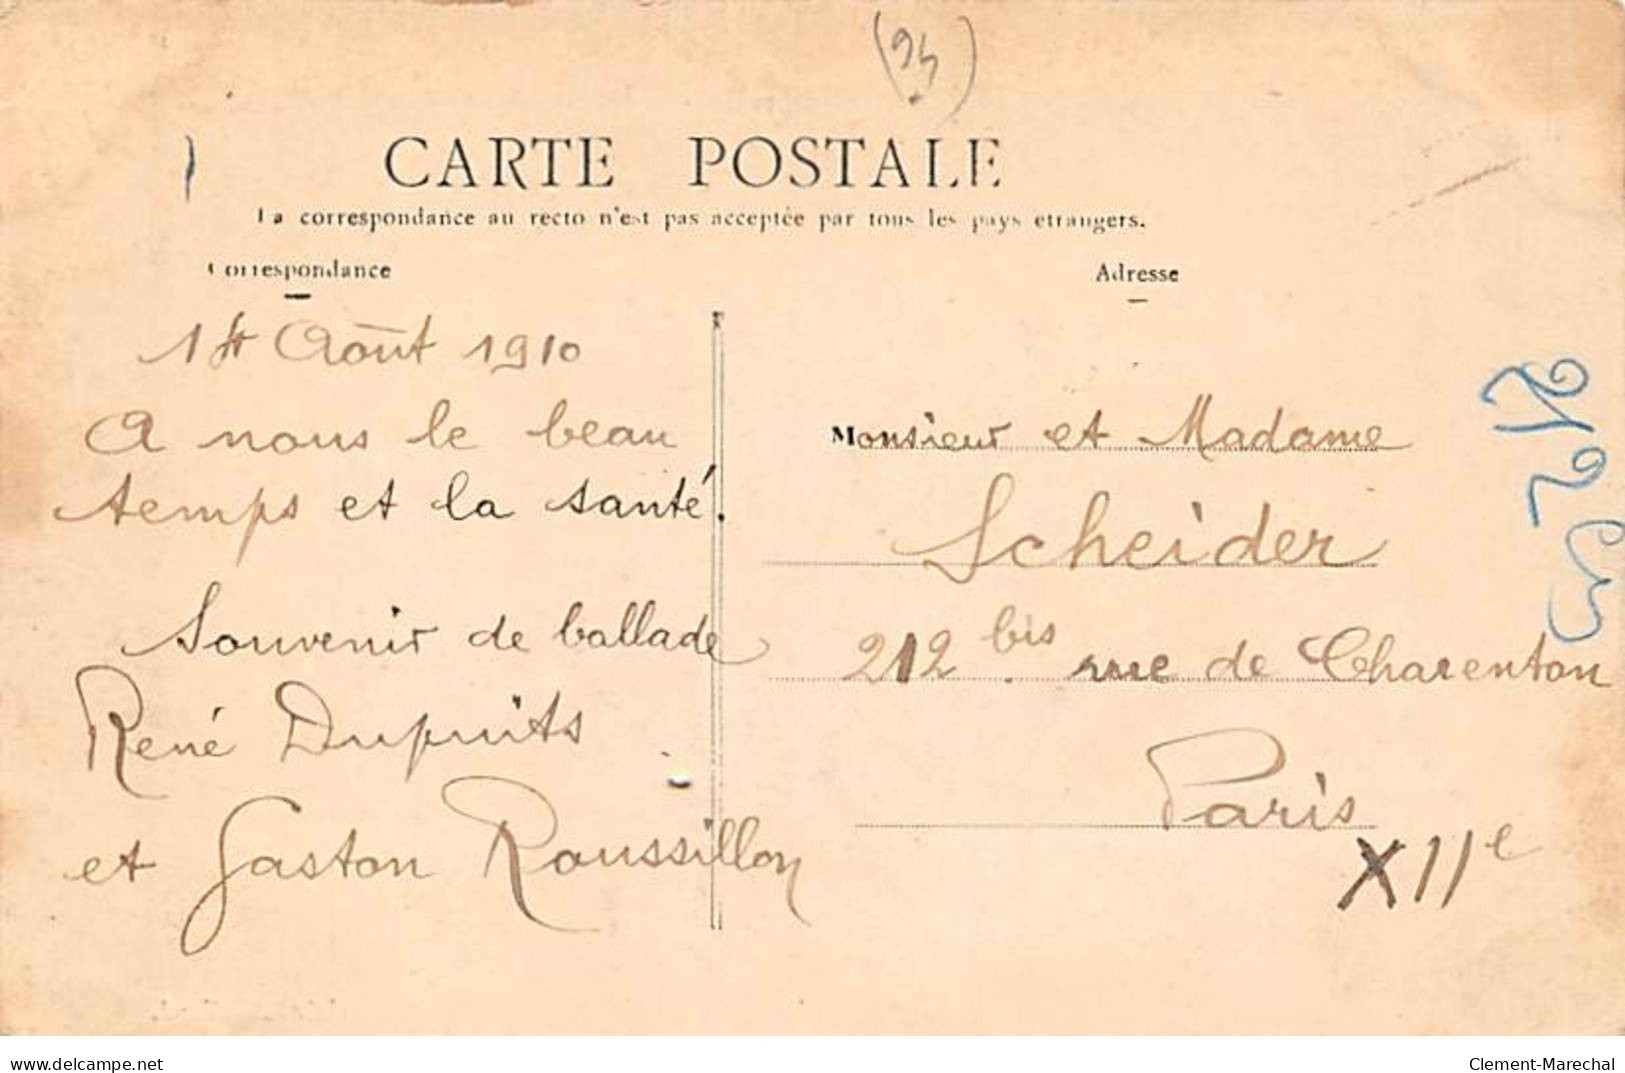 (94)
CARTE POSTALE
La correspondance au recto n'est pas acceptée par tous les pays etrangers.
Correspondance
Adresse
14 Août 1910
A nous le beau
temps et la santé.
Souvenir de ballade
René Dupuits
et Gaston Roussillon
Monsieur et Madame
Scheider
212 bis rue de Charenton
Paris
XIIe
212
delcampe.net
Clement-Marechal